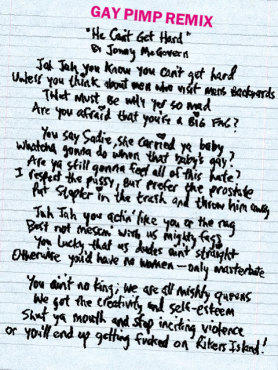 GAY PIMP REMIX
"He Can't Get Hard"
By Jonny McGovern
Jah Jah you know you can't get hard
Unless you think about men who visit mens Backyards
That Must be why yer so mad
Are you afraid that you're a BIG FAG?
You say Sadie, she carried ya baby
Whatcha gonna do when that baby's gay?
Are ya still gonna feel all of this hate?
I respect the pussy, but prefer the prostate
Put Stapler in the trash and throw him away
Jah Jah you actin' like you on the rag
Best not messin' with us mighty fags
You lucky that us dudes ain't straight
Otherwise you'd have no women - only masterbate
You ain't no king; we are all mighty queens
We got the creativity and self-esteem
Shut ya mouth and stop inciting violence
or you'll end up getting fucked on Rikers Island!